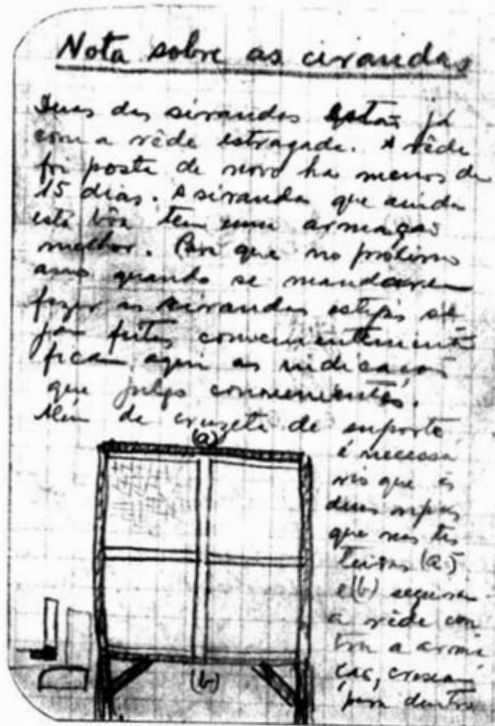 Nota sobre as cirandas
Duas das sirandas estão já
com a rêde estragada. A rêde
foi posta de novo ha menos de
15 dias. A siranda que ainda
está boa tem uma armação
melhor. Para que no próximo
ano quando se mandarem
fazer as sirandas estejas se
jam feitas convenientemente
ficam aqui as indicações
que julgo convenientes.
Além da cruzeta de suporte
(a)
é necessa
rio que as
duas ripas
que nas tes
teiras (a)
e (b) seguram
a rêde con
tra a arma
ção, cresçam
para dentro
(b)